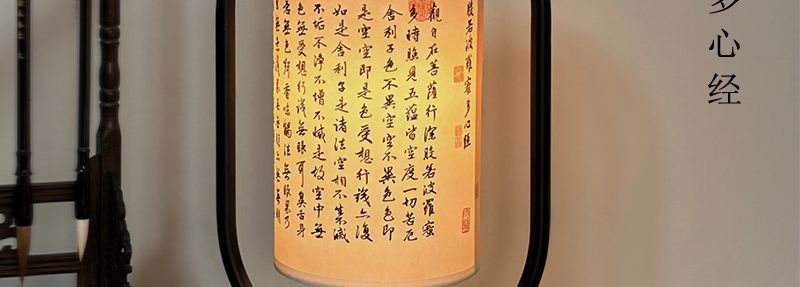 多心经
般若波羅蜜多心經
觀自在菩薩行深般若波羅蜜
多時照見五蘊皆空度一切苦厄
舍利子色不異空空不異色色即
是空空即是色受想行識亦復
如是舍利子是諸法空相不生滅
不垢不淨不增不減是故空中無
色無受想行識無眼耳鼻舌身
意無色聲香味觸法無眼界乃